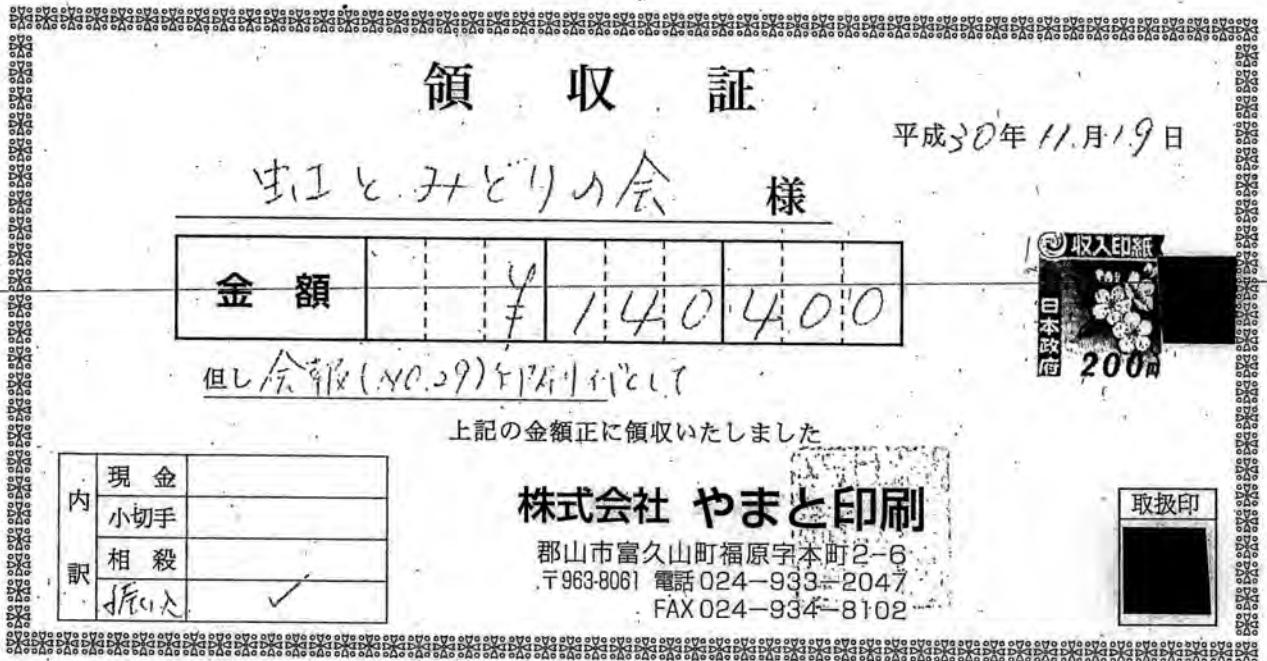 領収証
平成30年11月19日
虹とみどりの会 様
金額 ¥140400
但し 会報(NO.29)印刷代として
上記の金額正に領収いたしました
収入印紙
日本政府
200円
内訳
現金
小切手
相殺
振込 ✓
株式会社 やまと印刷
郡山市富久山町福原字本町2-6
〒963-8061 電話024-933-2047
FAX024-934-8102
取扱印